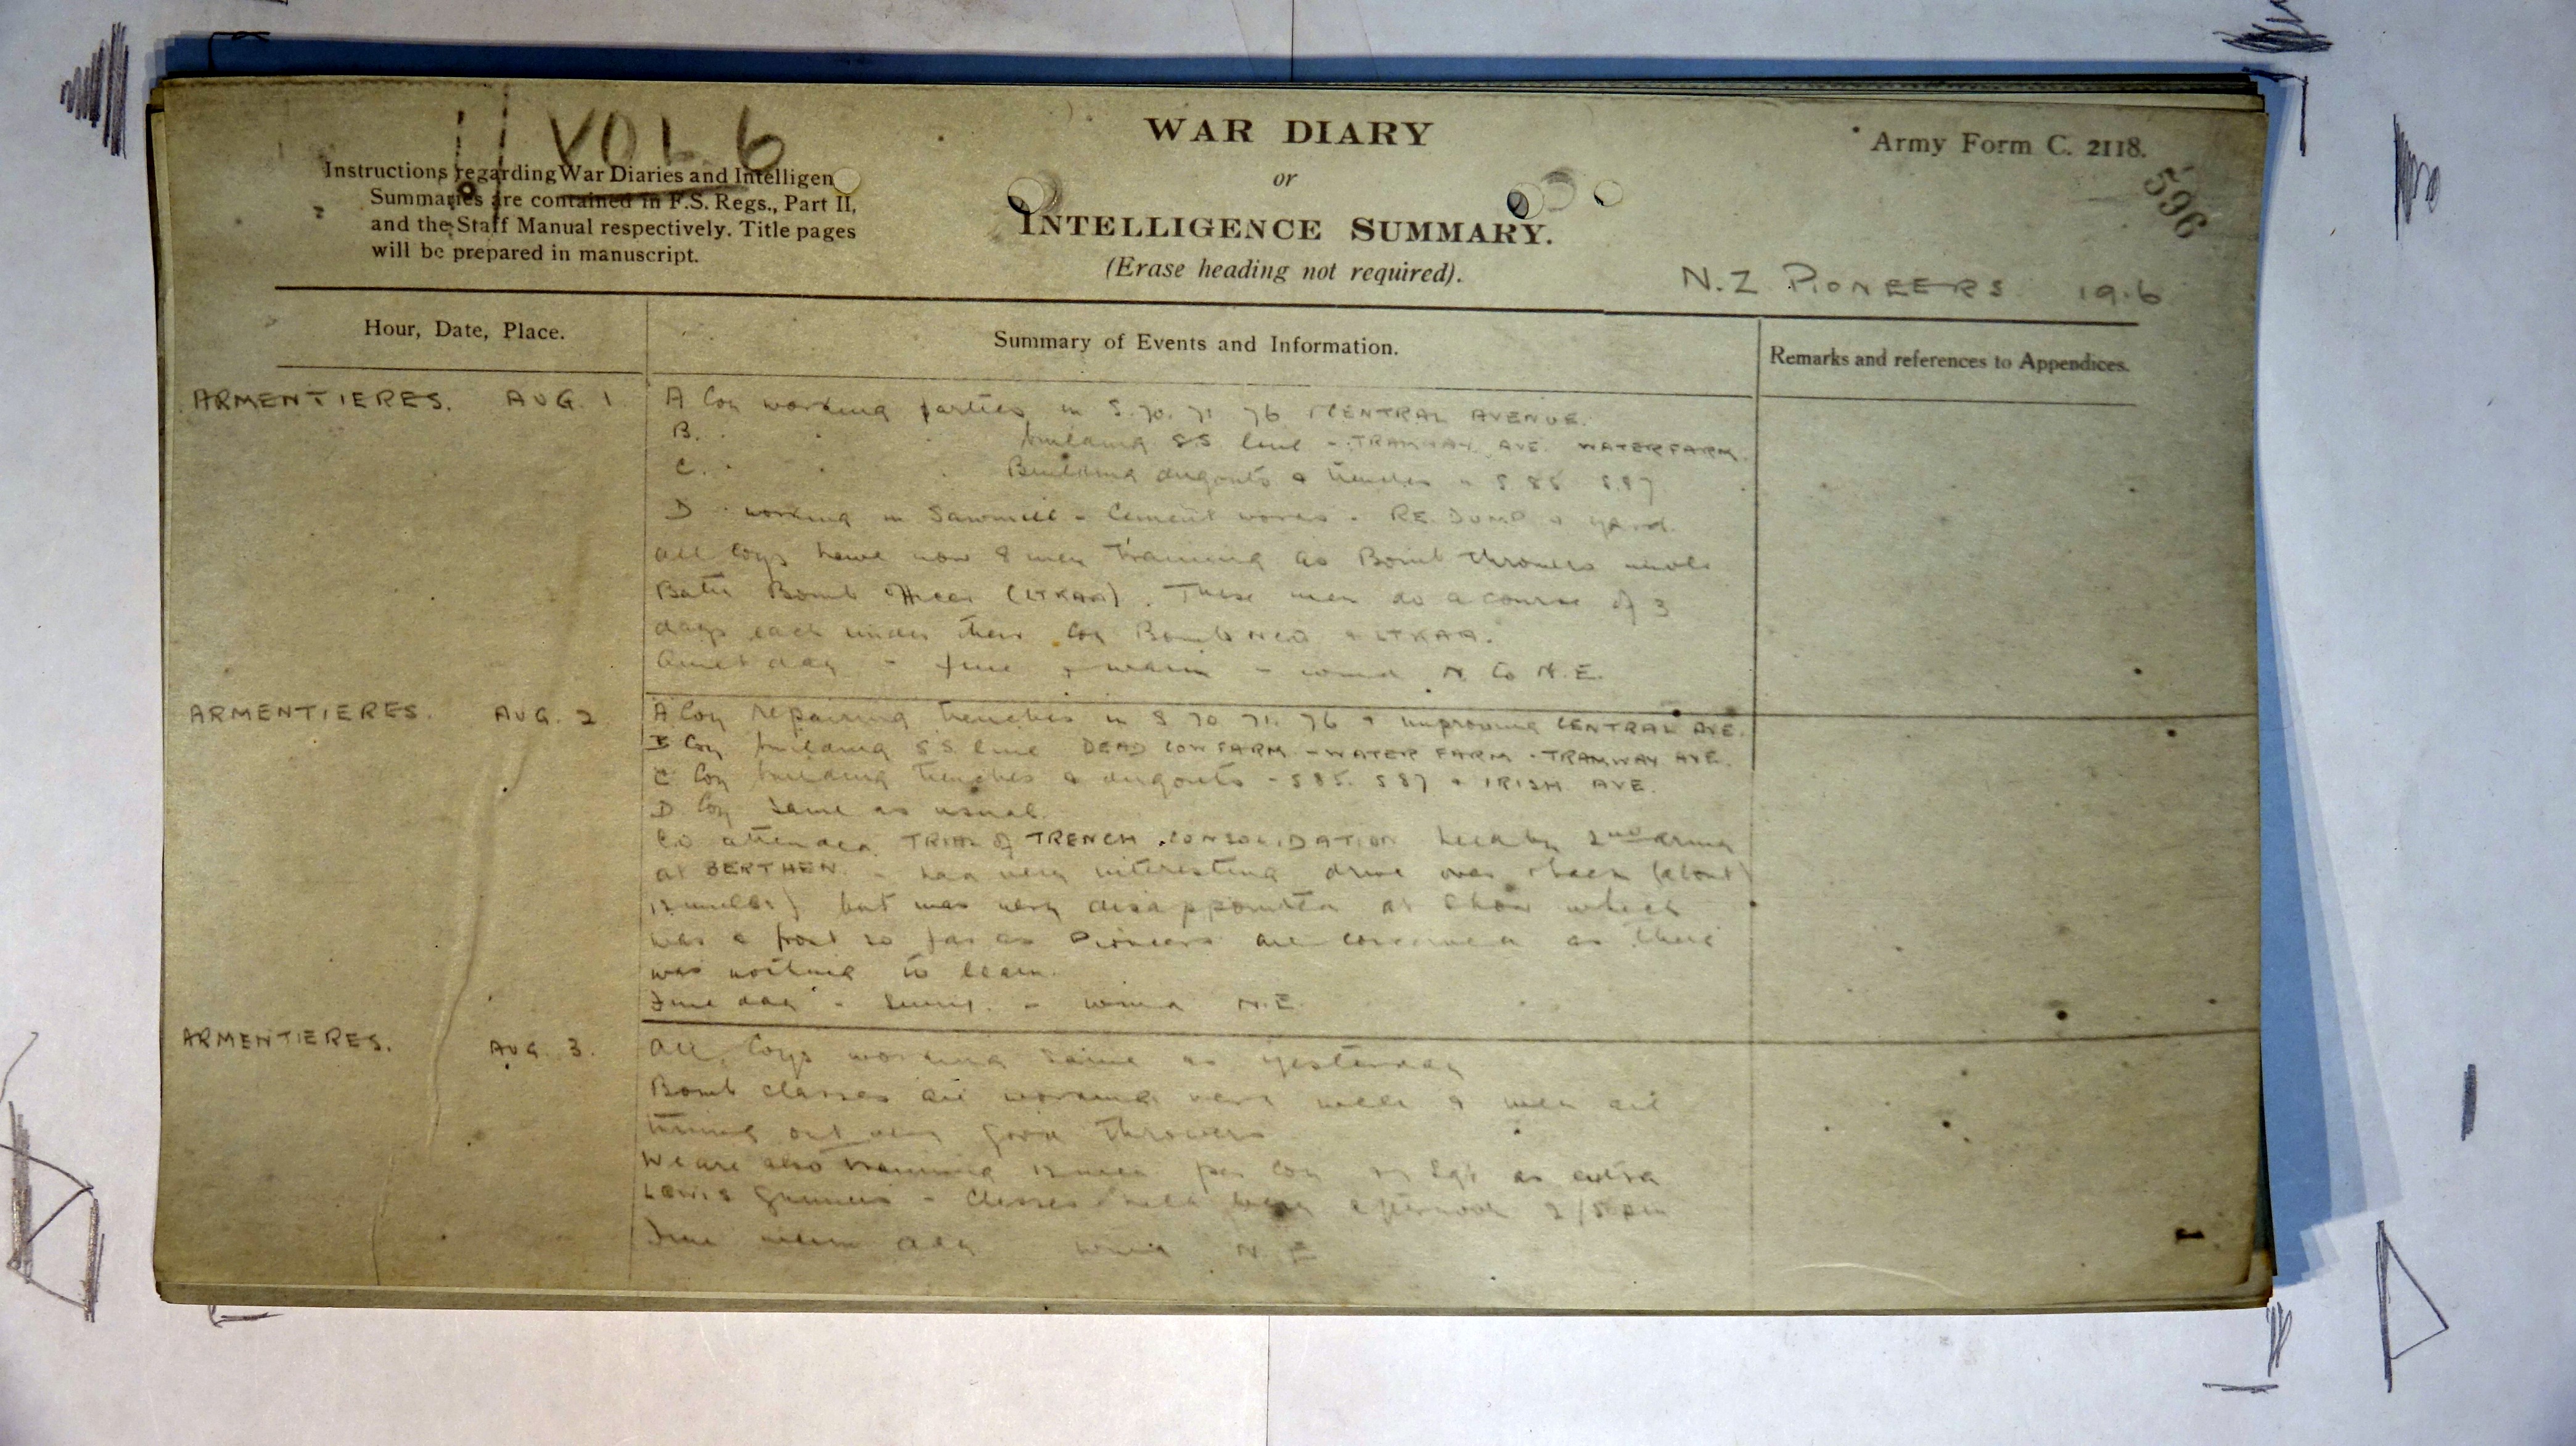 VOL 6
Instructions regarding War Diaries and Intelligen
Summaries are contained in F.S. Regs., Part II,
and the Staff Manual respectively. Title pages
will be prepared in manuscript.
WAR DIARY
or
INTELLIGENCE SUMMARY.
(Erase heading not required).
Army Form C. 2118.
596
N.Z PIONEERS 1916
Hour, Date, Place.
Summary of Events and Information.
Remarks and references to Appendices.
ARMENTIERES. AUG. 1
A Coy working parties in S.70. 71 76 CENTRAL AVENUE.
B. . . . building S.S. line - TRAMWAY AVE. WATERFARM.
C. . . . Building dugouts & trenches - S.85 S.87
D . working in Sawmill - Cement works - R.E. DUMP & yard.
All Coys have now 8 men training as Bomb throwers under
Batn Bomb Officer (LT KAA). These men do a course of 3
days each under their Coy Bomb NCO & LT KAA.
Quiet day - fine & warm - wind N to N.E.
ARMENTIERES. AUG. 2
A Coy repairing trenches in S 70 71. 76 & improving CENTRAL AVE.
B Coy building S.S. line DEAD COW FARM - WATER FARM - TRAMWAY AVE.
C Coy building trenches & dugouts - S 85. S 87 & IRISH AVE.
D Coy same as usual.
CO attended TRIAL of TRENCH CONSOLIDATION held by 2nd Army
at BERTHEN - had very interesting drive over & back (about
12 miles) but was very disappointed at show which
was a frost so far as Pioneers are concerned as there
was nothing to learn.
Fine day - Sunny. - wind N.E.
ARMENTIERES. AUG. 3.
All Coys working same as yesterday
Bomb classes are working very well & men are
turning out very good throwers
We are also training 12 men per Coy Sgt as extra
Lewis gunners - Classes held every afternoon 2/5 pm
Fine warm day wind N.E